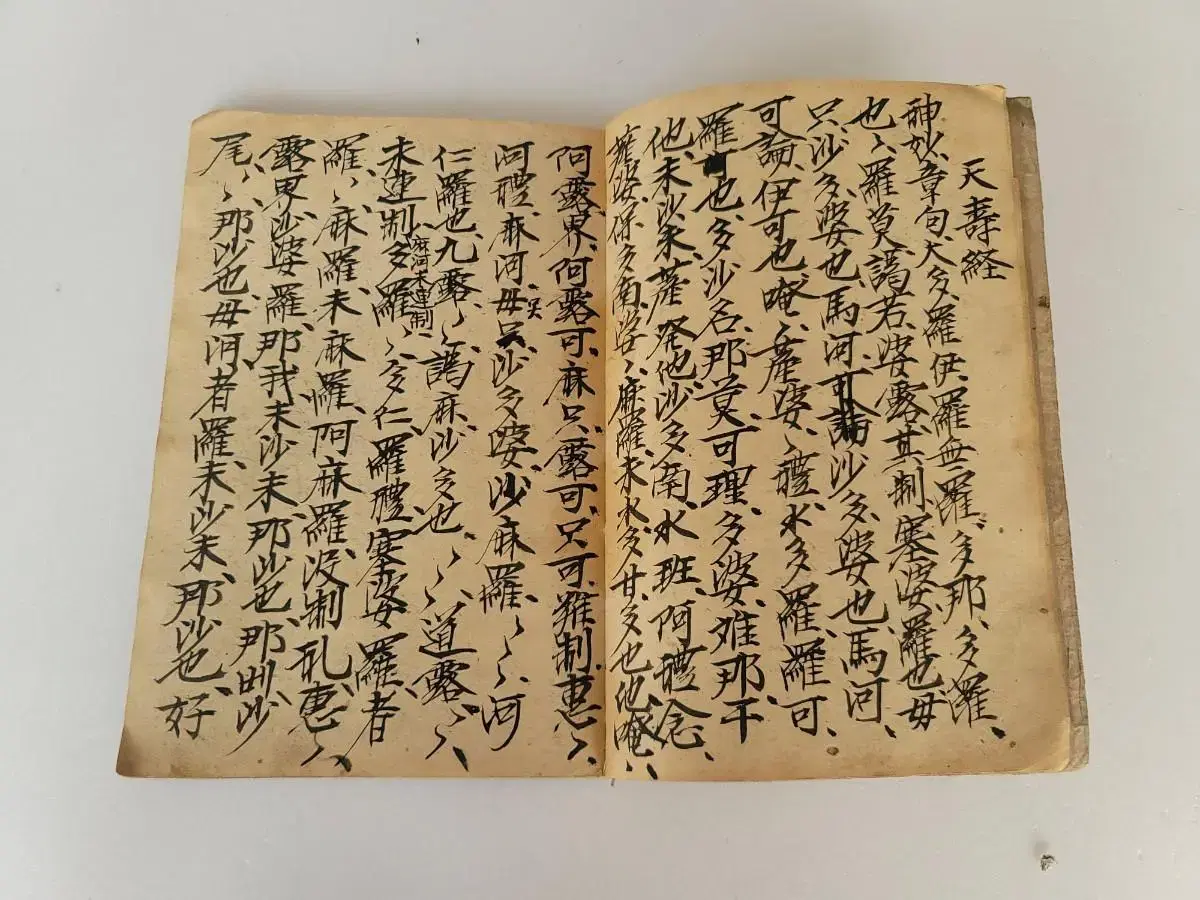 天壽経
神妙章句大多羅伊、羅無羅、多那、多羅、
也、〻羅莫謁若、婆露、其制塞婆羅也、毋
只沙多婆也、馬河、沙多、婆也、馬河、
可論、伊可也、唵、〻薩婆、〻體水多羅、羅可
羅也、多沙名、那莫、可理、多婆、难那干
他、未沙未、薩発他沙多南、水班、阿體念、
薩婆、保多南、婆〻、麻羅、未水多甘多也他、唵、〻
阿露界、阿露可、麻只、露可、只可、难制、惠〻、
河體、麻河毋呉沙多婆、沙麻羅、〻〻、河
仁羅也、九露、〻〻謁麻、沙多也、〻〻道露、〻〻、
未連制、麻河未連制、多羅、〻〻多仁、羅體、塞婆羅者
羅、〻麻羅、未麻羅、阿麻羅、没制礼、惠、〻
露界、沙婆羅、那我未沙未、那沙也、那沙
尾、〻那沙也、毋河者羅、未沙未、那沙也、好